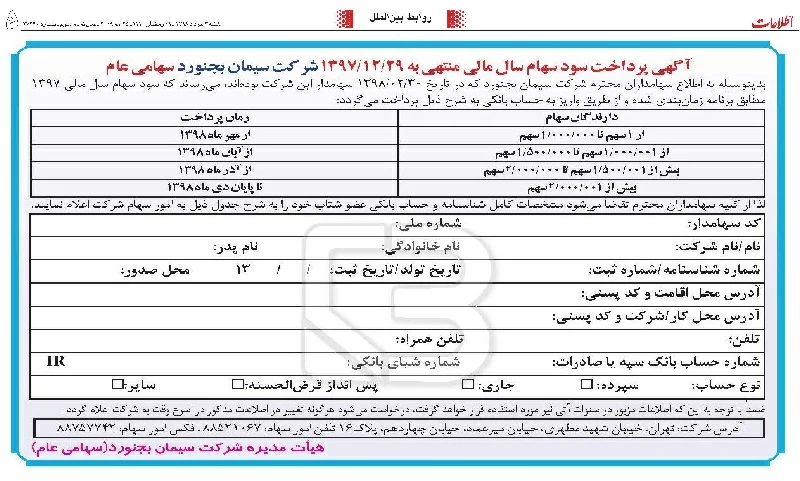 اطلاعات
روابط بین‌الملل
آگهی پرداخت سود سهام سال مالی منتهی به ۱۳۹۷/۱۲/۲۹ شرکت سیمان بجنورد سهامی عام
بدینوسیله به اطلاع سهامداران محترم شرکت سیمان بجنورد که در تاریخ ۱۳۹۸/۰۲/۳۰ سهامدار این شرکت بوده‌اند، می‌رساند که سود سهام سال مالی ۱۳۹۷
مطابق برنامه زمان‌بندی شده و از طریق واریز به حساب بانکی به شرح ذیل پرداخت می‌گردد:
دارندگان سهام زمان پرداخت
از ۱ سهم تا ۱/۰۰۰/۰۰۰ سهم از مهر ماه ۱۳۹۸
از ۱/۰۰۰/۰۰۱ سهم تا ۱/۵۰۰/۰۰۰ سهم از آبان ماه ۱۳۹۸
بیش از ۱/۵۰۰/۰۰۱ سهم تا ۲/۰۰۰/۰۰۰ سهم از آذر ماه ۱۳۹۸
بیش از ۲/۰۰۰/۰۰۱ سهم تا پایان دی ماه ۱۳۹۸
لذا از کلیه سهامداران محترم تقاضا می‌شود مشخصات کامل شناسنامه و حساب بانکی عضو شتاب خود را به شرح جدول ذیل به امور سهام شرکت اعلام نمایند.
کد سهامدار: شماره ملی:
نام/نام شرکت: نام خانوادگی: نام پدر:
شماره شناسنامه/شماره ثبت: تاریخ تولد/تاریخ ثبت: / / ۱۳ محل صدور:
آدرس محل اقامت و کد پستی:
آدرس محل کار/شرکت و کد پستی:
تلفن: تلفن همراه:
شماره حساب بانک سپه یا صادرات: شماره شبای بانکی: IR
نوع حساب: سپرده:☐ جاری:☐ پس انداز قرض‌الحسنه:☐ سایر:☐
ضمناً با توجه به این که اطلاعات مزبور در سنوات آتی نیز مورد استفاده قرار خواهد گرفت، درخواست می‌شود هرگونه تغییر در اطلاعات مذکور در اسرع وقت به شرکت اعلام گردد
آدرس شرکت: تهران، خیابان شهید مطهری، خیابان میرعماد، خیابان چهاردهم، پلاک ۱۶ تلفن امور سهام: ۸۸۵۲۱۰۶۷ ، فکس امور سهام: ۸۸۷۵۷۷۴۲
هیأت مدیره شرکت سیمان بجنورد(سهامی عام)